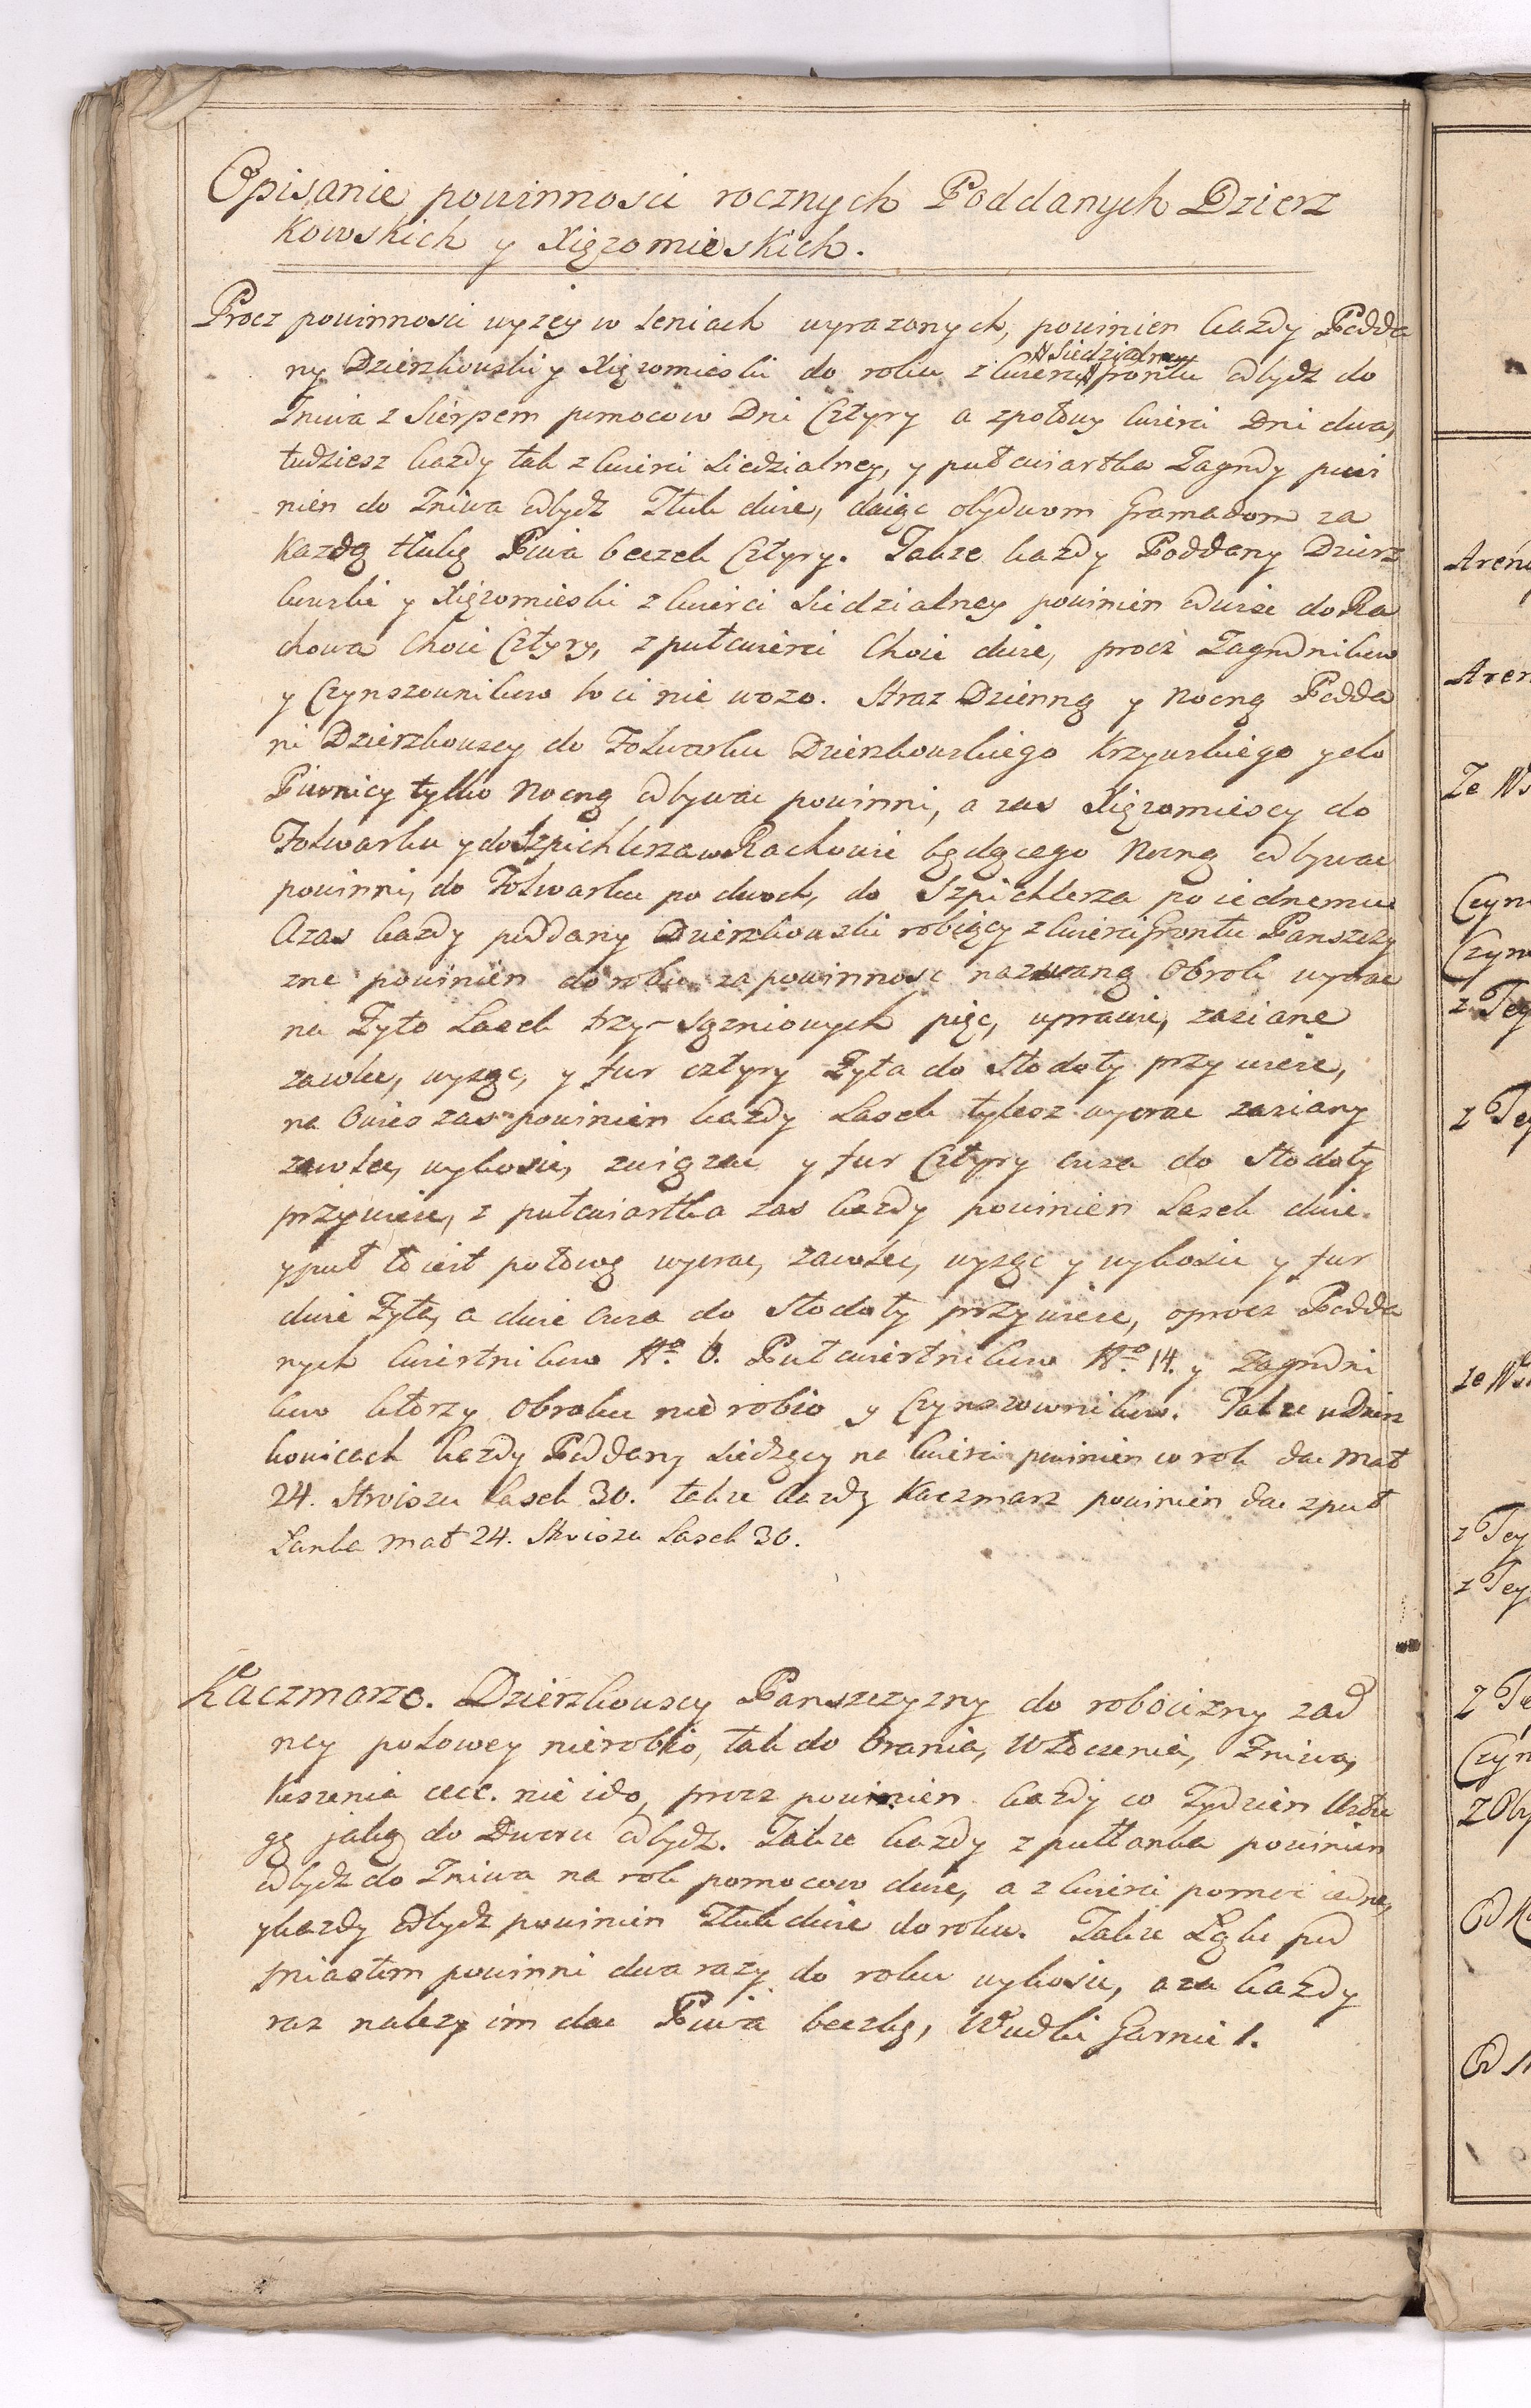 Opisanie powinnosci rocznych Poddanych Dzierz
kowskich y Xięzomieskich.
Procz powinnosci wyzey w seriach wyrazonych, powinien kazdy Podda
ny Dzierzkowski y Xięzomieski do roku z kwierci Siedzialney Grontu odbydz do
Zniwa z Sierpem pomocow Dni Cztyry a z połowy kwierci Dni dwa,
tudziesz kazdy tak z kwierci siedzialney, y pułcwiartka Zagrody powi
nien do Zniwa odbydz Tłuk dwie, daiąc obydwom Gromadom za
kazdą tłukę Piwa beczek Cztyry. Takze kazdy Poddany Dzierz
kowski y Xięzomieski z kwierci siedzialney powinien odwieze do Ra
chowa Choie Cztyry, z pułcwierci Choie dwie, procz Zagrodnikow
y Czynszownikow bo ci nie wozo. Straz Dzienną y Nocną Podda
ni Dzierzkowscy do Folwarku Dzierzkowskiego Krzywskiego y do
Piwnicy tylko Nocną odbywac powinni, a zas Xięzomiescy do
Folwarku y do Szpichlerza w Rachowie będącego Nocną odbywac
powinni, do Folwarku po dwoch, do Szpichlerza po iednemu
Azas kazdy poddany Dzierzkowski robiący z kwierci Grontu Panszczy
zne powinien do roku za powinnosc nazwaną Obrok wyorac
na Zyto Lasek trzy-Sązniowych pięc, uprawic, zasiane
zawlec, wyząc, y fur cztyry Zyta do Stodoły przywiesc,
na Owies zas powinien kazdy Lasek tylesz wyorac zasiany
zawlec, wykosic, związac y fur Cztyry Owsa do Stodoły
przywiesc, z pułcwiartka zas kazdy powinien Lasek dwie
y puł to iest połowę wyorac, zawlec, wyząc y wykosic y fur
dwie Zyta, a dwie Owsa do Stodoły przywiesc, oprocz Podda
nych kwiertnikow No. 6. Pułcwiertnikow No. 14. y Zagrodni
kow ktorzy Obroku nie robio y Czynszownikow. Takze w Dzierz
kowicach kazdy Poddany siedzący na kwierci powinien w rok dac Mat
24. Stroiszu Lasek 30. takze kazdy Kaczmarz powinien dac z puł
Łanka Mat 24. Stroiszu Lasek 30.
Kaczmarze. Dzierzkowscy Panszczyzny do robocizny zad
ney polowey nierobio, tak do Orania, Włoczenia, Zniwa,
Koszenia etc. nie ido, procz powinien kazdy co Tydzien Usłu
gę jaką do Dworu odbydz. Takze kazdy z pułłanka powinien
odbydz do Zniwa na rok pomocow dwie, a z kwierci pomoc iedne,
y kazdy odbydz powinien Tłuk dwie do roku. Takze Łąkę pod
Miastem powinni dwa razy do roku wykosic, a za kazdy
raz nalezy im dac Piwa beczkę, Wudki Garniec 1.